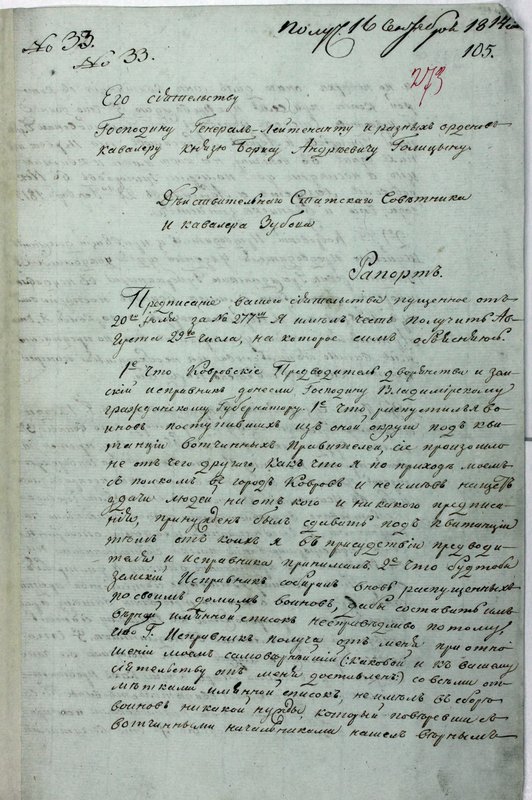 No 33.
No 33.
Получ. 16 Сентября 1814го
105.
273
Его Сіятельству
Господину Генералъ-Лейтенанту и разныхъ орденовъ
кавалеру князю Борису Андреевичу Голицыну.
Действительнаго Статскаго Советника
и кавалера Зубова
Рапортъ.
Предписаніе вашего сіятельства пущенное отъ
20го Іюля за № 277мъ Я имелъ честь получить Ав-
густа 29го числа, на которое симъ объясняю.
1е Что Ковровскіе Предводитель дворянства и зем-
скій исправникъ донесли Господину Владимірскому
гражданскому Губернатору. 1е что, распустилъ я во-
иновъ поступившихъ изъ оной округи подъ кви-
танціи вотчинныхъ Правителей, сіе произошло
не отъ чего другаго, какъ что я по приходе моемъ
съ полкомъ въ городъ Ковровъ и не имевъ на щетъ
здачи людей ни отъ кого и никакого предписа-
нія, принужденъ былъ сдавать подъ квитанціи
темъ отъ коихъ я въ присудствіи предводи-
теля и исправника принималъ. 2е что будтобы
Земскій Исправникъ собиралъ вновь распущенныхъ
по своимъ домамъ воиновъ, дабы составить имъ
верной имянной списокъ несправедливо потому,
что Г. Исправникъ получа отъ меня при отно-
шеніи моемъ самовернейшій (: каковой и къ вашему
сіятельству отъ меня доставленъ:) со всеми от-
метками имянной списокъ, не имелъ въ сборе
воиновъ никакой нужды, который поверивши съ
вотчинными начальниками нашелъ вернымъ